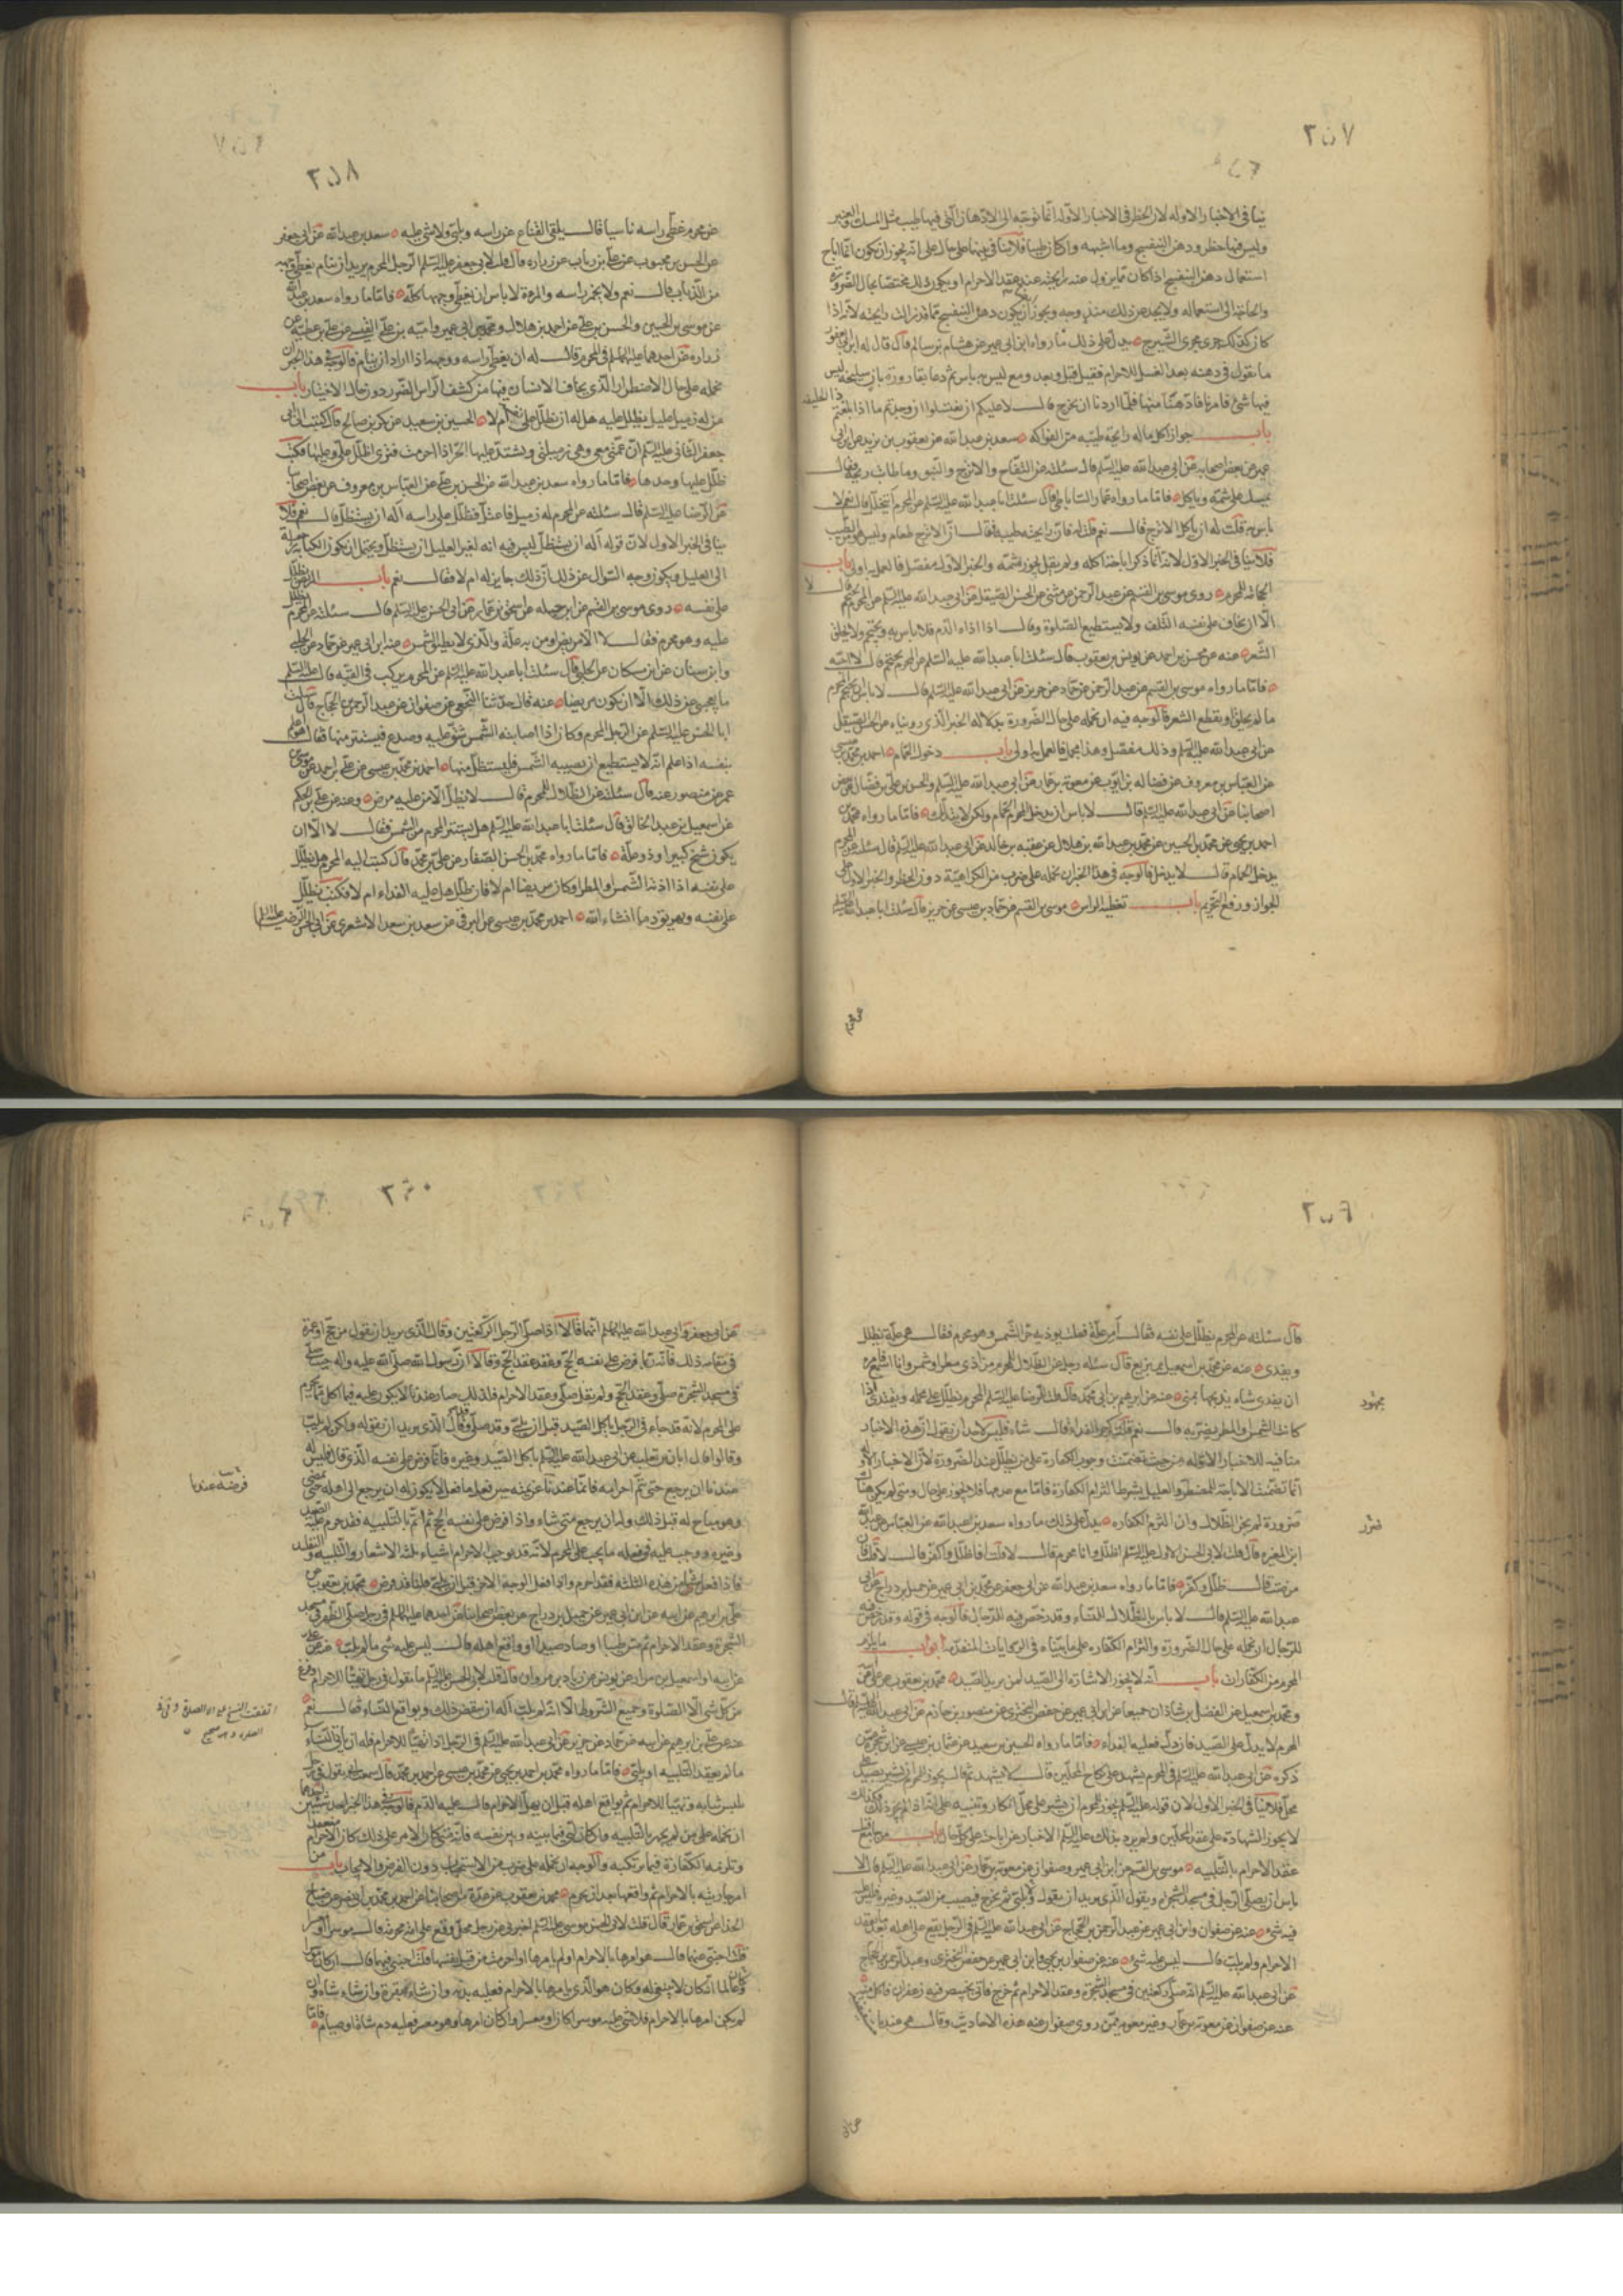 ٢٥٧
ينافي الاخبار الاوله لان الحظر في الاخبار الاوله انما توجه الى الادهان التي فيها طيب مثل المسك والعنبر
وليس فيها حظر دهن البنفسج وما اشبهه
استعمال دهن البنفسج اذا كان مما يزول عنه رايحته عند عقد الاحرام او يكون ذلك مختصا بحال الضرورة
والحاجة الى استعماله ويجوز ان يكون دهن البنفسج مما قد زالت رايحته لانه اذا
كان كذلك جرى مجرى الشيرج يدل على ذلك ما رواه ابن ابي عمير عن هشام بن سالم قال قال له ابن ابي يعفور
ما تقول في دهنه بعد الغسل للاحرام فقيل قبل وبعد ومع ليس به باس ثم دعا بقارورة بان سليخة ليس
فيها شئ فامرنا فادهنا منها فلما اردنا ان نخرج قال لا عليكم ان تغتسلوا ان وجدتم ماء اذا بلغتم ذا الحليفه
باب جواز اكل ماله رايحة طيبه من الفواكه سعد بن عبد الله عن يعقوب بن يزيد عن ابن ابي
عمير عن بعض اصحابه عن ابي عبد الله عليه السلم قال سئلته عن التفاح والاترج والنبق وما طاب ريحه فقال
يمسك على شمه وياكله فاما ما رواه عمار الساباطي قال سئلت ابا عبد الله عليه السلم عن المحرم يتخلل قال نعم لا
باس به قلت له ان ياكل الاترج قال نعم قلت له فان رايحته طيبه فقال ان الاترج طعام وليس هو من الطيب
فلا ينافي الخبر الاول لانه انما ذكر اباحة اكله ولم يقل يجوز شمه والخبر الاول مفصل فالعمل به اولى باب
الحجامة للمحرم روى موسى بن القسم عن عبد الرحمن عن مثنى عن الحسن الصيقل عن ابي عبد الله عليه السلم عن المحرم يحتجم قال لا
الا ان يخاف على نفسه التلف ولا يستطيع الصلوة وقال اذا اذاه الدم فلا باس به ويحتجم ولا يحلق
الشعر عنه عن محسن بن احمد عن يونس بن يعقوب قال سئلت ابا عبد الله عليه السلم عن المحرم يحتجم قال لا احبه
فاما ما رواه موسى بن القسم عن عبد الرحمن عن حماد عن حريز عن ابي عبد الله عليه السلم قال لا باس ان يحتجم المحرم
ما لم يحلق او يقطع الشعر فالوجه فيه ان نحمله على حال الضرورة بدلالة الخبر الذي رويناه عن الحسن الصيقل
عن ابي عبد الله عليه السلم وذلك مفصل وهذا مجمل فالعمل به اولى باب دخول الحمام احمد بن محمد بن عيسى
عن العباس بن معروف عن فضاله بن ايوب عن معوية بن عمار عن ابي عبد الله عليه السلم والحسن بن علي بن فضال عن بعض
اصحابنا عن ابي عبد الله عليه السلم قال لا باس ان يدخل المحرم الحمام ولكن لا يتدلك فاما ما رواه محمد بن
احمد بن يحيى عن محمد بن الحسين عن محمد بن عبد الله بن هلال عن عقبه بن خالد عن ابي عبد الله عليه السلم قال سئلته عن المحرم
يدخل الحمام قال لا يدخل فالوجه في هذا الخبر ان نحمله على ضرب من الكراهية دون الحظر والخبر الاول على
الجواز ورفع التحريم باب تغطية الراس موسى بن القسم عن حماد بن عيسى عن حريز قال سئلت ابا عبد الله عليه السلم
٢٥٨
عن محرم غطى راسه ناسيا قال يلقي القناع عن راسه ويلبي ولا شئ عليه سعد بن عبد الله عن ابي جعفر
عن الحسن بن محبوب عن علي بن رياب عن زراره قال قلت لابي جعفر عليه السلم الرجل المحرم يريد ان ينام يغطي وجهه
من الذباب قال نعم ولا يخمر راسه والمرءة لا باس ان يغطي وجهها كله فاما ما رواه سعد بن عبد الله
عن موسى بن الحسين والحسن بن علي عن احمد بن هلال ومحمد بن ابي عمير واميه بن علي القيسي عن علي بن عطيه عن
زراره عن احدهما عليهما السلم في المحرم قال له ان يغطي راسه ووجهه اذا اراد ان ينام فالوجه في هذا الخبر ان
نحمله على حال الاضطرار الذي يخاف الانسان فيها من كشف الراس الضرر دون حال الاختيار باب
من له زميل عليل يظلل عليه هل له ان يظلل على نفسه ام لا الحسين بن سعيد عن بكر بن صالح قال كتبت الى ابي
جعفر الثاني عليه السلم ان عمتي معي وهي زميلتي ويشتد عليها الحر اذا احرمت فترى اظلل علي وعليها فكتب
ظلل عليها وحدها فاما ما رواه سعد بن عبد الله عن الحسن بن علي عن العباس بن معروف عن بعض اصحابنا
عن الرضا عليه السلم قال سئلته عن المحرم له زميل فاعتل فظلل على راسه اله ان يستظل قال نعم فلا
ينافي الخبر الاول لان قوله اله ان يستظل ليس فيه انه لغير العليل ان يستظل ويحتمل ان يكون الكناية راجعة
الى العليل ويكون وجه السؤال عن ذلك ان ذلك جايز له ام لا فقال نعم باب
على نفسه روى موسى بن القسم عن ابن جبله عن اسحق بن عمار عن ابي الحسن عليه السلم قال سئلته عن المحرم
عليه وهو محرم فقال لا الا مريض او من به علة والذي لا يطيق الشمس
وابن سنان عن ابن مسكان عن الحلبي قال سئلت ابا عبد الله عليه السلم عن المحرم يركب في القبه قال
ما يعجبني ذلك الا ان يكون مريضا عنه قال حدثنا النخعي عن صفوان عن عبد الرحمن بن الحجاج قال سئلت
ابا الحسن عليه السلم عن الرجل المحرم وكان اذا اصابته الشمس شق عليه وصدع فيستتر منها فقال هو اعلم
بنفسه اذا علم انه لا يستطيع ان تصيبه الشمس فليستظل منها احمد بن محمد بن عيسى عن علي بن احمد عن موسى بن
عمر عن منصور عنه قال سئلته عن الظلال للمحرم قال لا يظلل الا من علة مرض وعنه عن علي بن الحكم
عن اسمعيل بن عبد الخالق قال سئلت ابا عبد الله عليه السلم هل يستتر المحرم من الشمس فقال لا الا ان
يكون شيخ كبيرا او ذو علة فاما ما رواه محمد بن الحسن الصفار عن علي بن محمد قال كتبت اليه المحرم هل يظلل
على نفسه اذا اذته الشمس او المطر او كان مريضا ام لا فان ظلل هل عليه الفداء ام لا فكتب يظلل
على نفسه ويهريق دما انشاء الله احمد بن محمد بن عيسى عن البرقي عن سعد بن سعد الاشعري عن ابي الحسن الرضا عليه السلم
٢٥٩
قال سئلته عن المحرم يظلل على نفسه فقال امن علة فقلت يوذيه حر الشمس وهو محرم فقال هي علة يظلل
ويفدي عنه عن محمد بن اسمعيل بن بزيع قال سئله رجل عن الظلال للمحرم من اذى مطر او شمس وانا اسمع فامره
ان يفدي شاه يذبحها بمنى عنه عن ابرهيم بن ابي محمود قال قلت للرضا عليه السلم المحرم يظلل على محمله ويفتدي اذا
كانت الشمس والمطر يضر به قال نعم قلت كم الفداء قال شاه فليس لاحد ان يقول ان هذه الاخبار
منافيه للاخبار الاوله من حيث تضمنت وجوب الكفارة على من يظلل عند الضرورة لان الاخبار الاوله
انما تضمنت الاباحة للمضطر والعليل بشرط التزام الكفارة فاما مع عدمها فلا يجوز على حال ومتى لم يكن هناك
ضرورة لم يجز الظلال وان التزم الكفاره يدل على ذلك ما رواه سعد بن عبد الله عن العباس عن عبد الله
ابن المغيره قال قلت لابي الحسن الاول عليه السلم اظلل وانا محرم قال لا قلت افاظلل واكفر قال لا قلت فان
مرضت قال ظلل وكفر فاما ما رواه سعد بن عبد الله عن ابي جعفر عن محمد بن ابي عمير عن جميل بن دراج عن ابي
عبد الله عليه السلم قال لا باس بالظلال للنساء وقد رخص فيه للرجال فالوجه في قوله وقد رخص فيه
للرجال ان نحمله على حال الضرورة والتزام الكفاره على ما بيناه في الروايات المتقدمه ابواب ما يلزم
المحرم من الكفارات باب انه لا يجوز الاشاره الى الصيد لمن يريد الصيد محمد بن يعقوب عن علي عن ابيه
ومحمد بن اسمعيل عن الفضل بن شاذان جميعا عن ابن ابي عمير عن حفص بن البختري عن منصور بن حازم عن ابي عبد الله عليه السلم قال
المحرم لا يدل على الصيد فان دل فعليه الفداء فاما ما رواه الحسين بن سعيد عن عثمان بن عيسى عن ابن شجره عمن
ذكره عن ابي عبد الله عليه السلم في المحرم يشهد على نكاح المحلين قال لا يشهد ثم قال يجوز للمحرم ان يشير بصيد على
محل فلا ينافي الخبر الاول لان قوله عليه السلم يجوز للمحرم ان يشير على محل انكار وتنبيه على انه اذا لم يجز ذلك فكذلك
لا يجوز الشهادة على عقد المحلين ولم يرد بذلك عليه السلم الاخبار عن اباحته على كل حال باب
عقد الاحرام بالتلبيه موسى بن القسم عن ابن ابي عمير وصفوان عن معوية بن عمار عن ابي عبد الله عليه السلم قال لا
باس ان يصلي الرجل في مسجد الشجره ويقول الذي يريد ان يقوله ولا يلبي ثم يخرج فيصيب من الصيد وغيره فليس عليه
فيه شئ عنه عن صفوان وابن ابي عمير عن عبد الرحمن بن الحجاج عن ابي عبد الله عليه السلم في الرجل يقع على اهله بعد ما يعقد
الاحرام ولم يلب قال ليس عليه شئ عنه عن صفوان بن يحيى وابن ابي عمير عن حفص بن البختري وعبد الرحمن بن الحجاج
عن ابي عبد الله عليه السلم انه صلى ركعتين في مسجد الشجرة وعقد الاحرام ثم خرج فاتي بخبيص فيه زعفران فاكل منه
عنه عن صفوان عن معوية بن عمار وغير معويه ممن روى صفوان عنه هذه الاحاديث وقال هي عندنا
٢٦٠
عن ابي جعفر وابي عبد الله عليهما السلم انهما قالا اذا صلى الرجل الركعتين وقال الذي يريد ان يقول من حج او عمرة
في مقامه ذلك فانه انما فرض على نفسه الحج وعقد عقد الحج وقالا ان رسول الله صلى الله عليه واله حيث صلى
في مسجد الشجرة صلى وعقد الحج ولم يقل صلى وعقد الاحرام فلذلك صار عندنا الا يكون عليه فيما اكل مما يحرم
على المحرم لانه قد جاء في الرجل ياكل الصيد قبل ان يلبي وقد صلى وقد قال الذي يريد ان يقوله ولكن لم يلب
وقالوا قال ابان بن تغلب عن ابي عبد الله عليه السلم ياكل الصيد وغيره فانما فرض على نفسه الذي قال فليس له
عندنا ان يرجع حتى يتم احرامه فانما عندنا عزيمته حين فعل ما فعل لا يكون له ان يرجع الى اهله حتى يمضي
وهو مباح له قبل ذلك وله ان يرجع متى شاء واذا فرض على نفسه الحج ثم اتم بالتلبيه فقد حرم عليه الصيد
وغيره ووجب عليه في فعله ما يجب على المحرم لانه قد يوجب الاحرام اشياء ثلثه الاشعار والتلبيه والتقليد
فاذا فعل شيئا من هذه الثلثه فقد احرم واذا فعل الوجه الاخر قبل ان يلبي فلبى فقد فرض محمد بن يعقوب عن
علي بن ابرهيم عن ابيه عن ابن ابي عمير عن جميل بن دراج عن بعض اصحابنا عن احدهما عليهما السلم في رجل صلى الظهر في مسجد
الشجرة وعقد الاحرام ثم مس طيبا او صاد صيدا او واقع اهله قال ليس عليه شئ ما لم يلب
عن ابيه او اسمعيل بن مرار عن يونس عن زياد بن مروان قال قلت لابي الحسن عليه السلم ما تقول في رجل تهيأ للاحرام وفرغ
من كل شئ الا الصلوة وجميع الشروط الا انه لم يلب اله ان ينقض ذلك ويواقع النساء فقال نعم
عنه عن علي بن ابرهيم عن ابيه عن حماد عن حريز عن ابي عبد الله عليه السلم في الرجل اذا تهيأ للاحرام فله ان ياتي النساء
ما لم يعقد التلبيه او يلبي فاما ما رواه محمد بن احمد بن يحيى عن محمد بن عيسى عن احمد بن محمد قال سمعت ابي يقول في رجل
يلبس ثيابه ويتهيأ للاحرام ثم يواقع اهله قبل ان يهل بالاحرام قال عليه الدم فالوجه في هذا الخبر احد شيئين احدهما
ان نحمله على من لم يجهر بالتلبيه وان كان لبى فيما بينه وبين نفسه فانه متى كان الامر على ذلك كان الاحرام منعقدا
وتلزمه الكفارة فيما يرتكبه والوجه ان نحمله على ضرب من الاستحباب دون الفرض والايجاب باب من
امر جاريته بالاحرام ثم واقعها بعد ان تحرم محمد بن يعقوب عن عدة من اصحابنا عن احمد بن محمد بن ابي نصر عن صباح
الحذاء عن اسحق بن عمار قال قلت لابي الحسن موسى عليه السلم اخبرني عن رجل محل وقع على امة محرمه قال موسرا او معسرا
قلت اجبني عنهما قال هو امرها بالاحرام او لم يامرها او احرمت من قبل نفسها قلت اجبني فيهما قال ان كان موسرا
وكان عالما انه كان لا ينبغي له وكان هو الذي امرها بالاحرام فعليه بدنه وان شاء بقرة وان شاء شاه وان
لم يكن امرها بالاحرام فلا شئ عليه موسرا كان او معسرا وان كان امرها وهو معسر فعليه دم شاة او صيام فاما